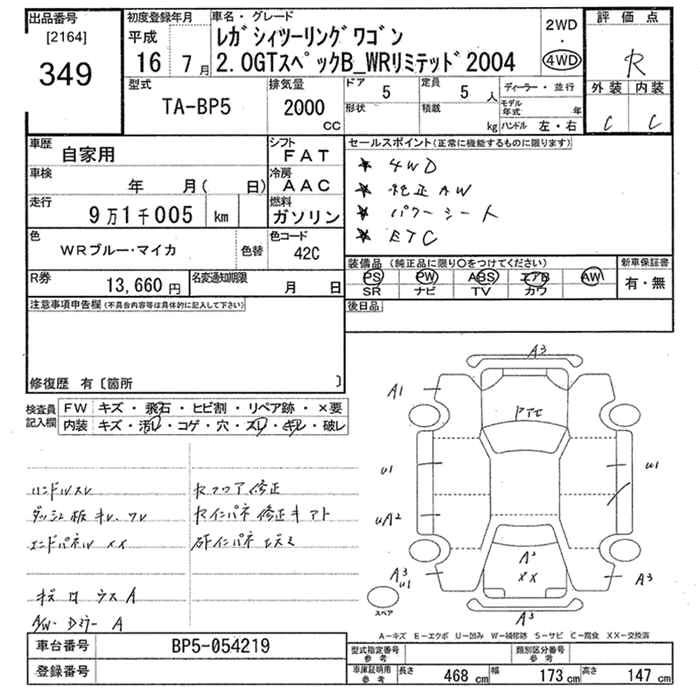 出品番号
[2164]
349
初度登録年月
平成
16 7月
車名・グレード
レガシィツーリングワゴン
2.0GTスペックB_WRリミテッド2004
2WD
・
4WD
評価点
R
外装 内装
C C
型式
TA-BP5
排気量
2000
CC
ドア
5
形状
定員
5 人
積載
kg
ディーラー・並行
モデル年式 年
ハンドル 左・右
車歴
自家用
シフト
FAT
車検
年 月( 日)
冷房
AAC
走行
9万1千005 km
燃料
ガソリン
色
WRブルー・マイカ
色替
色コード
42C
R券
13,660 円
名変通知期限
月 日
セールスポイント(正常に機能するものに限ります)
★ 4WD
★ 純正AW
★ パワーシート
★ ETC
装備品 (純正品に限り○をつけてください)
新車保証書
PS PW ABS エアB AW
SR ナビ TV カワ
有・無
後日品
注意事項申告欄(不具合内容等は具体的に記入して下さい)
修復歴 有〔箇所 〕
検査員記入欄
FW キズ・飛石・ヒビ割・リペア跡・×要
内装 キズ・汚レ・コゲ・穴・スレ・キレ・破レ
ハンドルスレ
ダッシュ板キレ、ワレ
エンドパネル
Rフロア修正
Rインパネ修正キアト
A/W・Dミラー A
A3
A1
U1
UA2
A3
U1
A2
XX
U1
A3
A3
スペア
A-キズ E-エクボ U-凹み W-補修跡 S-サビ C-腐食 XX-交換済
車台番号
BP5-054219
登録番号
型式指定番号
参考
類別区分番号
参考
車庫証明用
参考
長さ 468 cm 幅 173 cm 高さ 147 cm